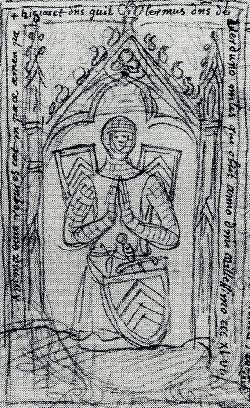 + hic jacet dns quil☉lermus dns de
verduno miles qui obiit anno dni millesimo ccc xl vii
Anima eius requiescat in pace amen pr